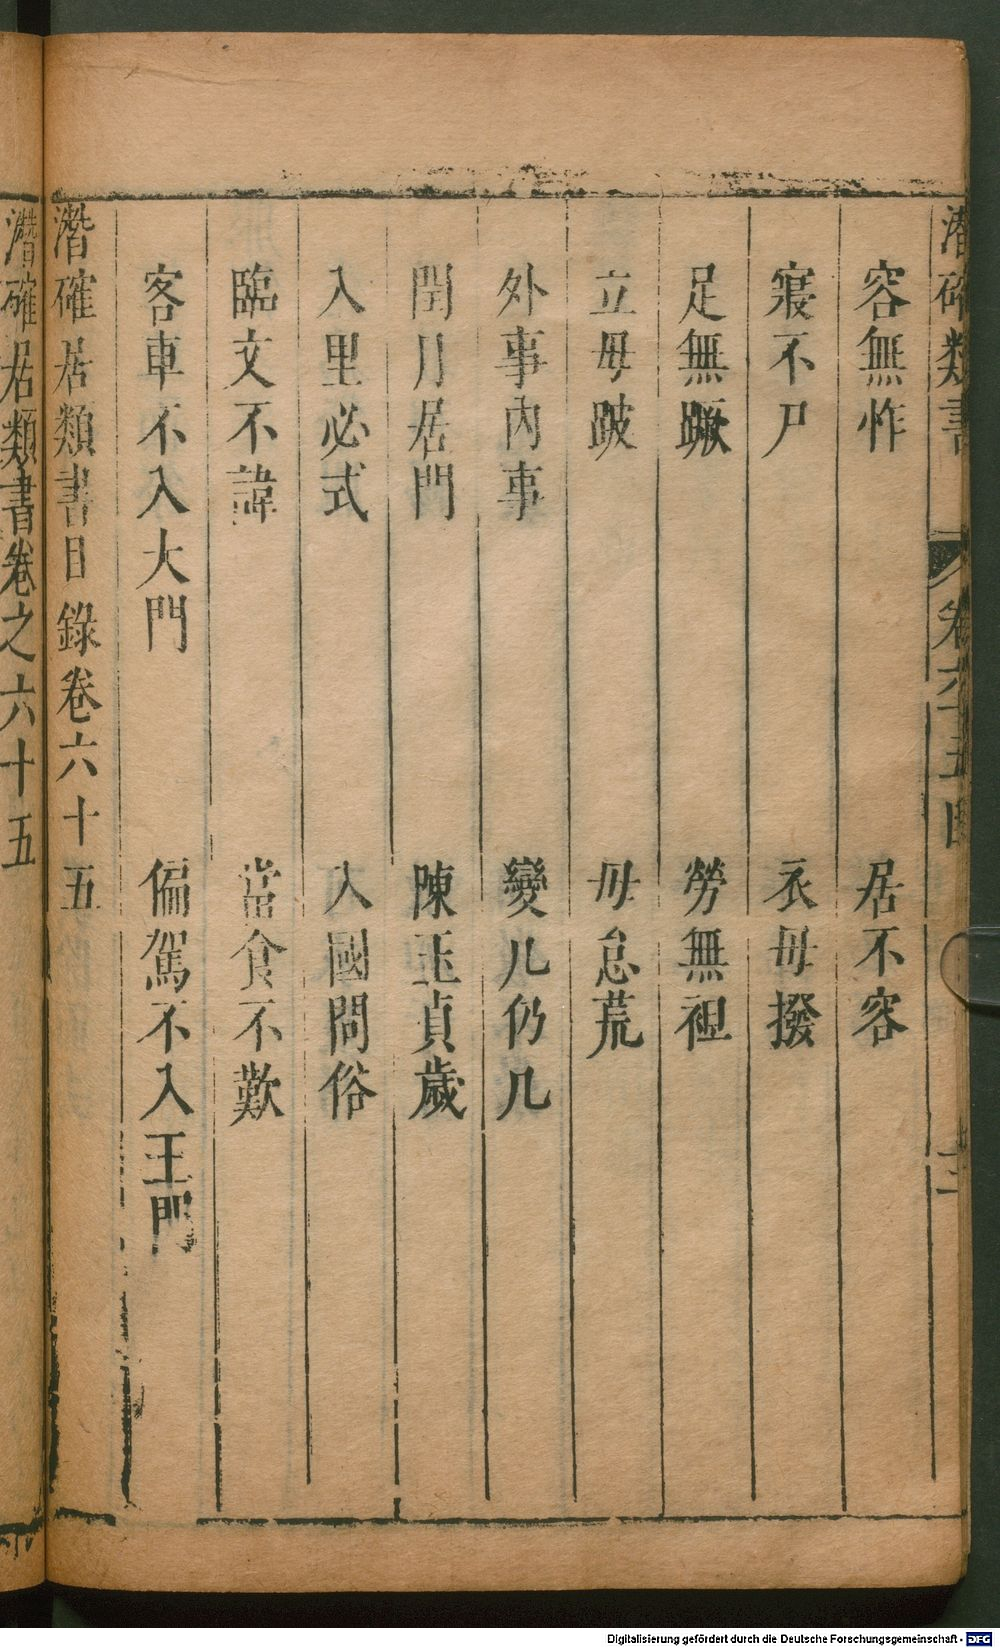 潛確類書 卷六十五目 二
容無怍 居不容
寢不尸 衣毋撥
足無蹶 勞無袒
立毋跛 毋怠荒
外事內事 變几仍几
閏月居門 陳玉貞歲
入里必式 入國問俗
臨文不諱 當食不歎
客車不入大門 偏駕不入王門
潛確居類書目錄卷六十五
潛確居類書卷之六十五
Digitalisierung gefördert durch die Deutsche Forschungsgemeinschaft - DFG